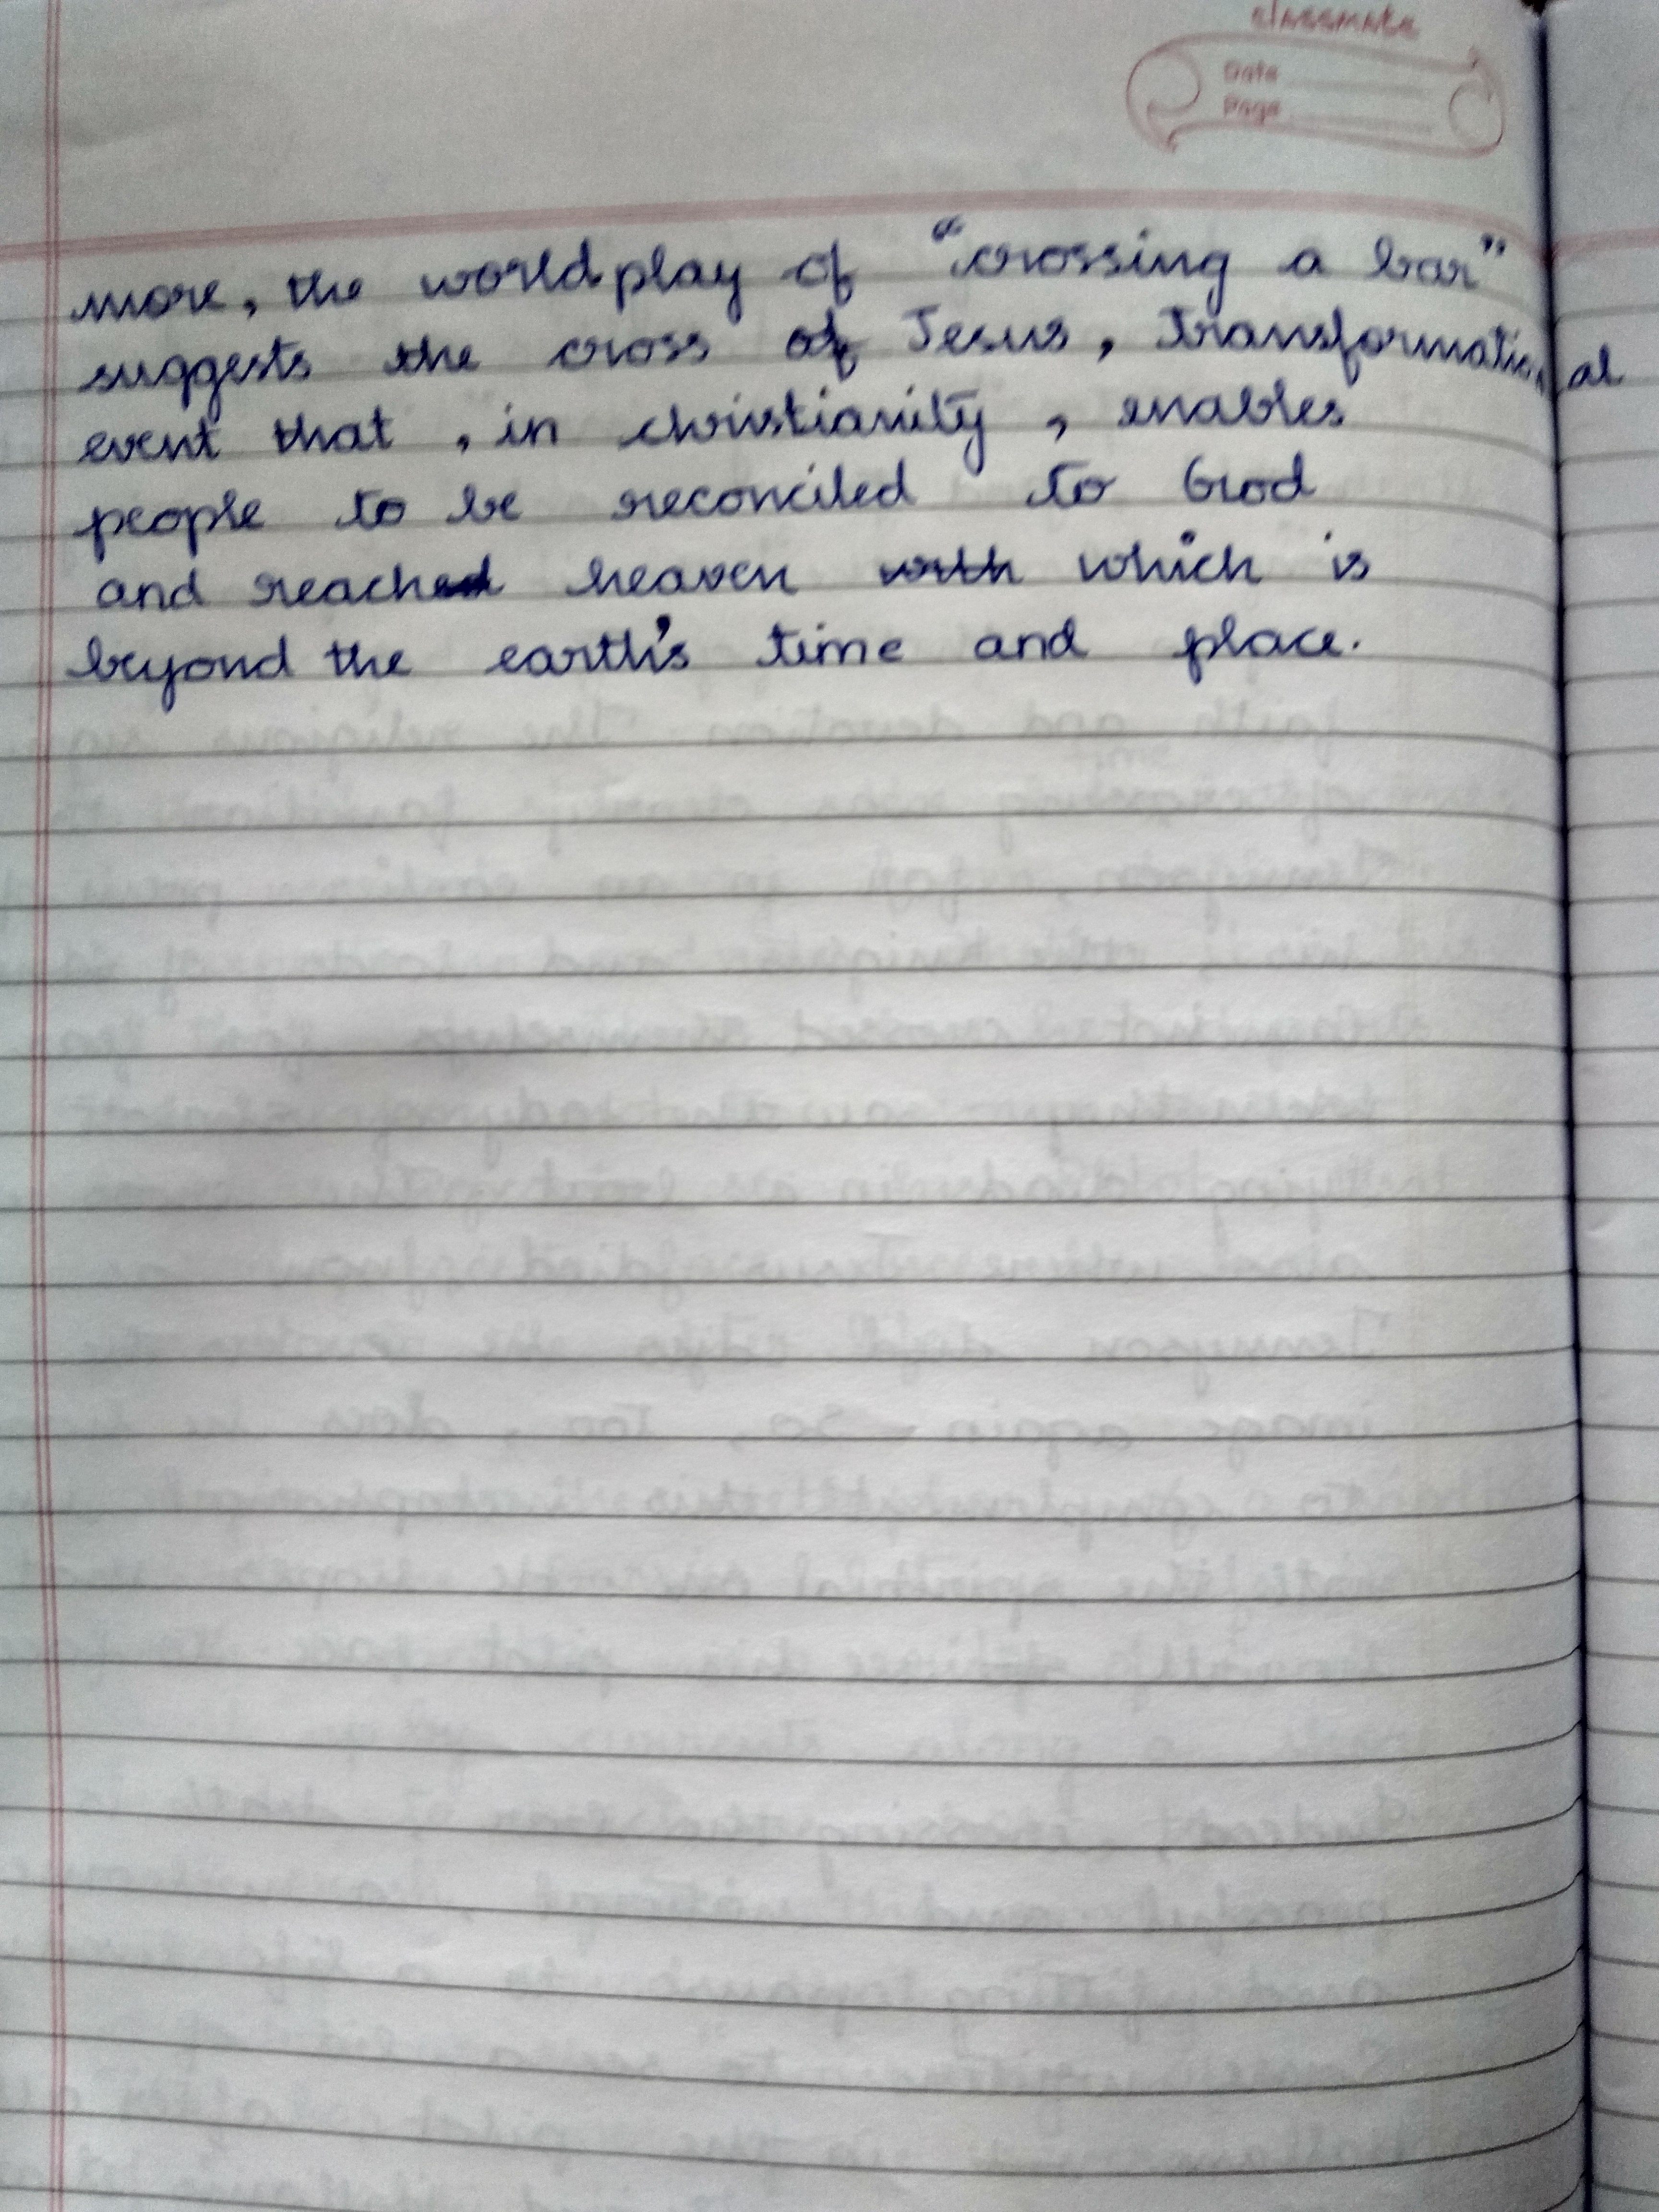 classmate
Date
Page
more, the world play of "crossing a bar"
suggests the cross of Jesus, Transformational
event that, in christianity, enables
people to be reconciled to God
and reached heaven with which is
beyond the earth's time and place.